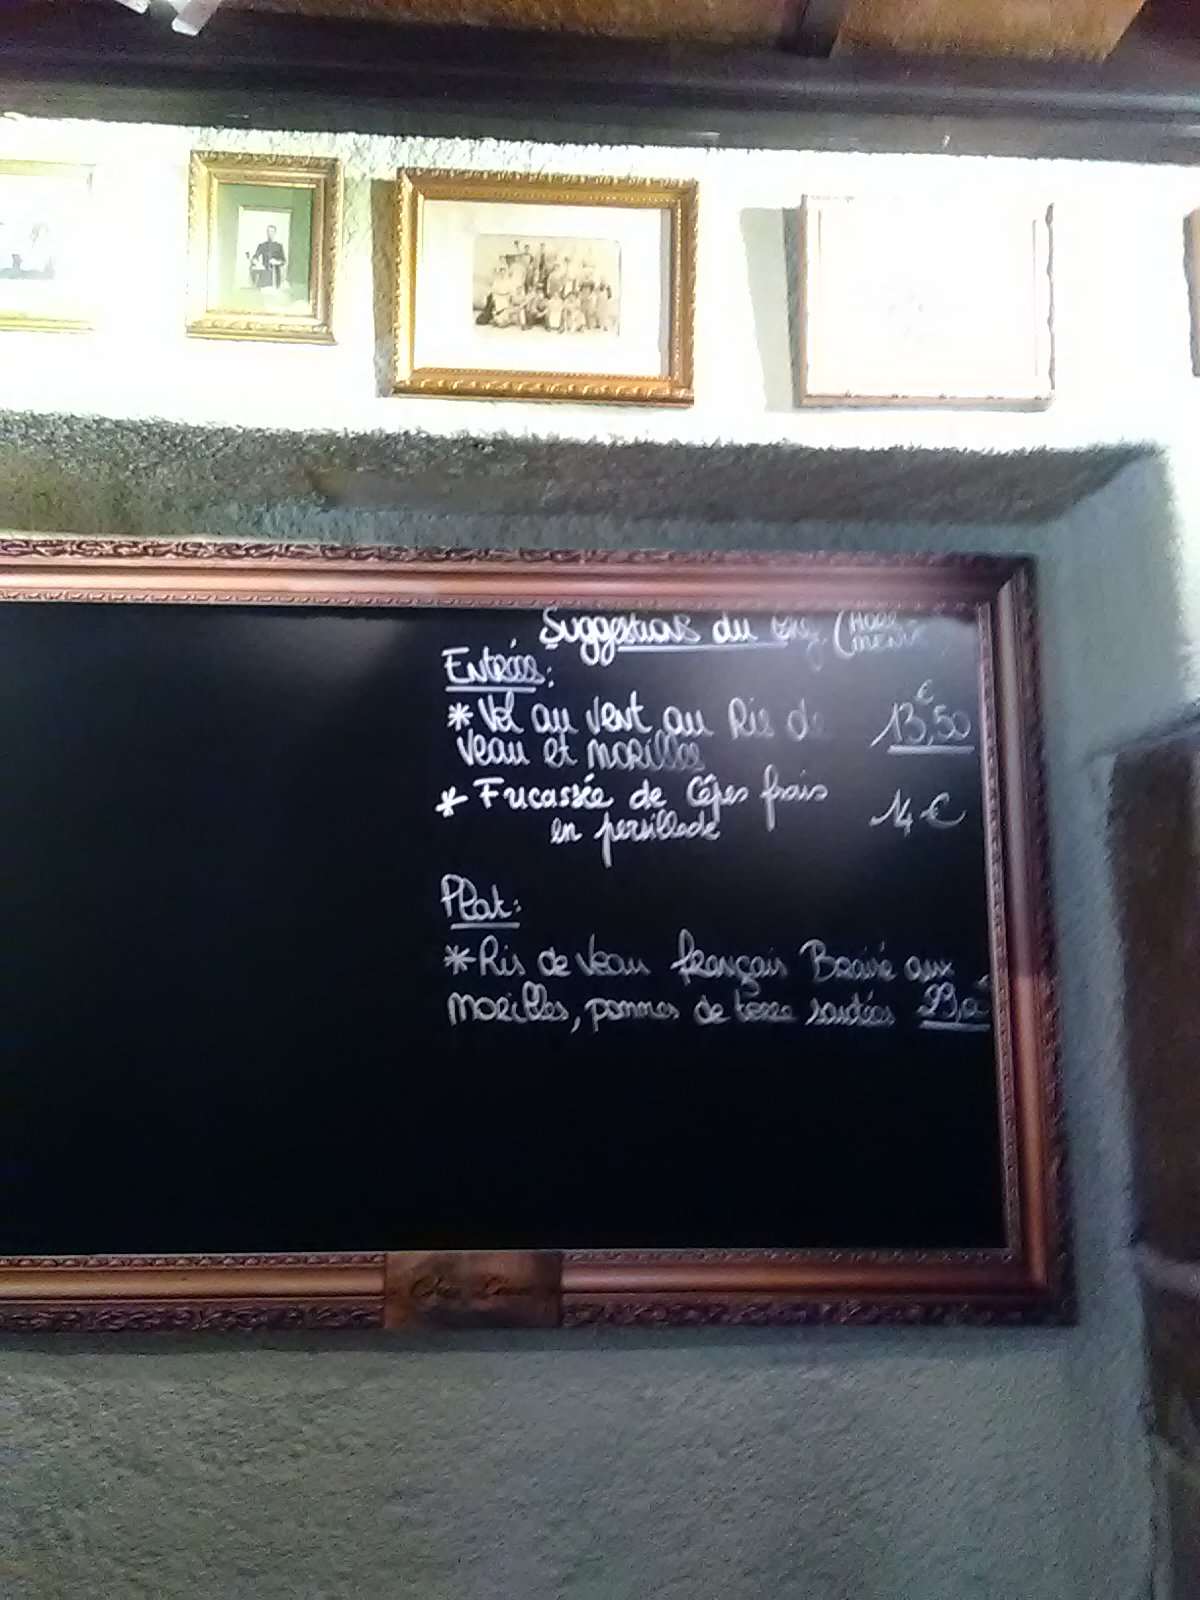 Suggestions du (HORS-
MENUS)
Entrées:
* Vol au vent au Ris de 13,50 €
veau et morilles
* Fricassée de Cêpes frais 14 €
en persillade
Plat:
* Ris de Veau français Braisé aux
morilles, pommes de terre sautées
Chez Léon